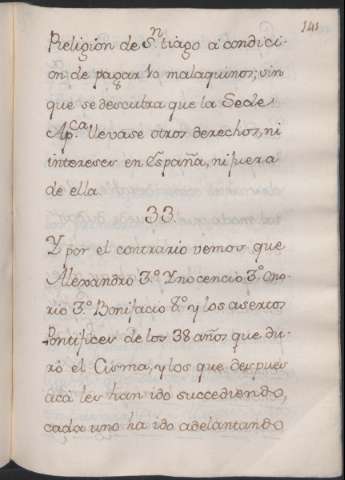 141
Religión de S.n tiago á condici-
on de pagar 10 malaquinos; sin
que se descubra que la Sede
Ap.ca llevase otros derechos, ni
intereses en España, ni fuera
de ella.
33.
Y por el contrario vemos que
Alexandro 3.º Ynocencio 3.º Ono-
rio 3.º Bonifacio 8.º y los asertos
Pontifices de los 38 años que du-
ró el Cisma, y los que despues
acá les han ido succediendo,
cada uno ha ido adelantando